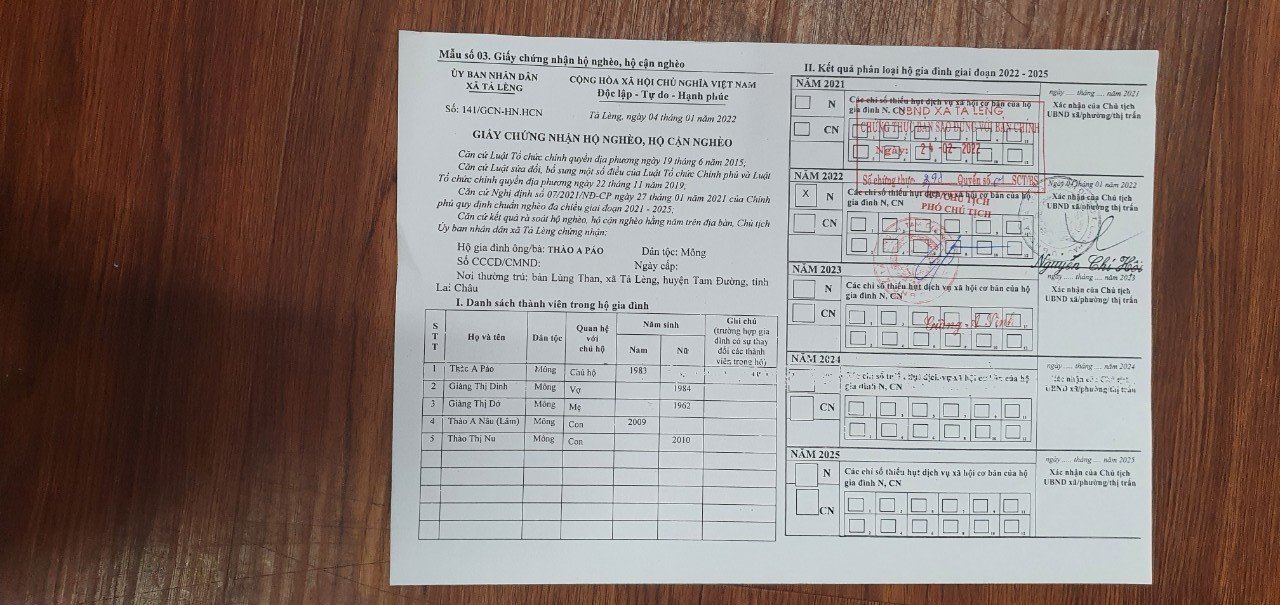 Mẫu số 03. Giấy chứng nhận hộ nghèo, hộ cận nghèo
ỦY BAN NHÂN DÂN
XÃ TẢ LÈNG
Số: 141/GCN-HN.HCN
CỘNG HÒA XÃ HỘI CHỦ NGHĨA VIỆT NAM
Độc lập - Tự do - Hạnh phúc
Tả Lèng, ngày 04 tháng 01 năm 2022
GIẤY CHỨNG NHẬN HỘ NGHÈO, HỘ CẬN NGHÈO
Căn cứ Luật Tổ chức chính quyền địa phương ngày 19 tháng 6 năm 2015;
Căn cứ Luật sửa đổi, bổ sung một số điều của Luật Tổ chức Chính phủ và Luật
Tổ chức chính quyền địa phương ngày 22 tháng 11 năm 2019;
Căn cứ Nghị định số 07/2021/NĐ-CP ngày 27 tháng 01 năm 2021 của Chính
phủ quy định chuẩn nghèo đa chiều giai đoạn 2021 - 2025;
Căn cứ kết quả rà soát hộ nghèo, hộ cận nghèo hằng năm trên địa bàn, Chủ tịch
Ủy ban nhân dân xã Tả Lèng chứng nhận:
Hộ gia đình ông/bà: THÀO A PÁO Dân tộc: Mông
Số CCCD/CMND: Ngày cấp:
Nơi thường trú; bản Lùng Than, xã Tả Lèng, huyện Tam Đường, tỉnh
Lai Châu
I. Danh sách thành viên trong hộ gia đình
STT Họ và tên Dân tộc Quan hệ với chủ hộ Năm sinh Nam Nữ Ghi chú (trường hợp gia đình có sự thay đổi các thành viên trong hộ)
1 Thào A Páo Mông Chủ hộ 1983
2 Giàng Thị Dinh Mông Vợ 1984
3 Giàng Thị Dó Mông Mẹ 1962
4 Thào A Nâu (Lâm) Mông Con 2009
5 Thào Thị Nu Mông Con 2010
II. Kết quả phân loại hộ gia đình giai đoạn 2022 - 2025
NĂM 2021
N
CN
Các chỉ số thiếu hụt dịch vụ xã hội cơ bản của hộ
gia đình N, CN
ngày .... tháng .... năm 2021
Xác nhận của Chủ tịch
UBND xã/phường/thị trấn
UBND XÃ TẢ LÈNG
CHỨNG THỰC BẢN SAO ĐÚNG VỚI BẢN CHÍNH
Ngày: 24 -02- 2022
Số chứng thực Quyển số SCT/BS
CHỦ TỊCH
PHÓ CHỦ TỊCH
NĂM 2022
X N
CN
Các chỉ số thiếu hụt dịch vụ xã hội cơ bản của hộ
gia đình N, CN
Ngày 04 tháng 01 năm 2022
Xác nhận của Chủ tịch
UBND xã/phường/thị trấn
Nguyễn Chí Hải
NĂM 2023
N
CN
Các chỉ số thiếu hụt dịch vụ xã hội cơ bản của hộ
gia đình N, CN
ngày .... tháng .... năm 2023
Xác nhận của Chủ tịch
UBND xã/phường/thị trấn
NĂM 2024
CN
gia đình N, CN
ngày .... tháng .... năm 2024
UBND xã/phường/thị trấn
NĂM 2025
N
CN
Các chỉ số thiếu hụt dịch vụ xã hội cơ bản của hộ
gia đình N, CN
ngày .... tháng .... năm 2025
Xác nhận của Chủ tịch
UBND xã/phường/thị trấn